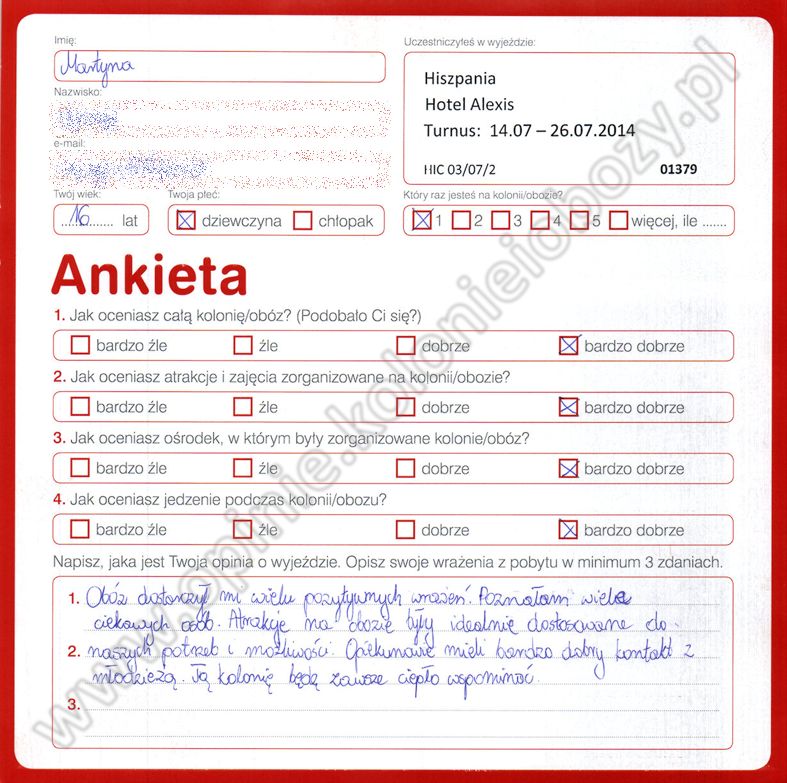 Imię:
Uczestniczyłeś w wyjeździe:
Martyna
Hiszpania
Hotel Alexis
Turnus: 14.07 – 26.07.2014
HIC 03/07/2 01379
Nazwisko:
e-mail:
Twój wiek:
Twoja płeć:
Który raz jesteś na kolonii/obozie?
16 lat
dziewczyna chłopak
1 2 3 4 5 więcej, ile .......
Ankieta
1. Jak oceniasz całą kolonię/obóz? (Podobało Ci się?)
bardzo źle źle dobrze bardzo dobrze
2. Jak oceniasz atrakcje i zajęcia zorganizowane na kolonii/obozie?
bardzo źle źle dobrze bardzo dobrze
3. Jak oceniasz ośrodek, w którym były zorganizowane kolonie/obóz?
bardzo źle źle dobrze bardzo dobrze
4. Jak oceniasz jedzenie podczas kolonii/obozu?
bardzo źle źle dobrze bardzo dobrze
Napisz, jaka jest Twoja opinia o wyjeździe. Opisz swoje wrażenia z pobytu w minimum 3 zdaniach.
1. Obóz dostarczył mi wielu pozytywnych wrażeń. Poznałam wiele
ciekawych osób. Atrakcje na obozie były idealnie dostosowane do
2. naszych potrzeb i możliwości. Opiekunowie mieli bardzo dobry kontakt z
młodzieżą. Tą kolonię będę zawsze ciepło wspominać.
3.
www.opinie.kolonieiobozy.pl